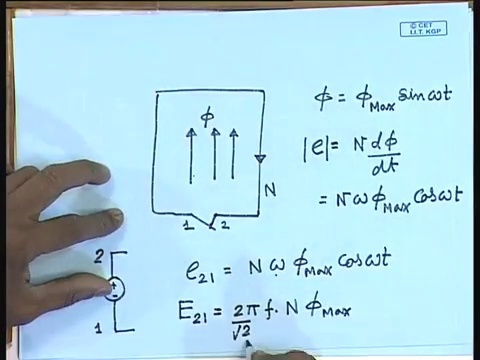 © CET
I.I.T. KGP
ϕ
ϕ = ϕ_Max sin ωt
|e| = N dϕ/dt
= N ω ϕ_Max cos ωt
N
1 2
e_21 = N ω ϕ_Max cos ωt
2
+
-
1
E_21 = 2π/√2 f. N ϕ_Max